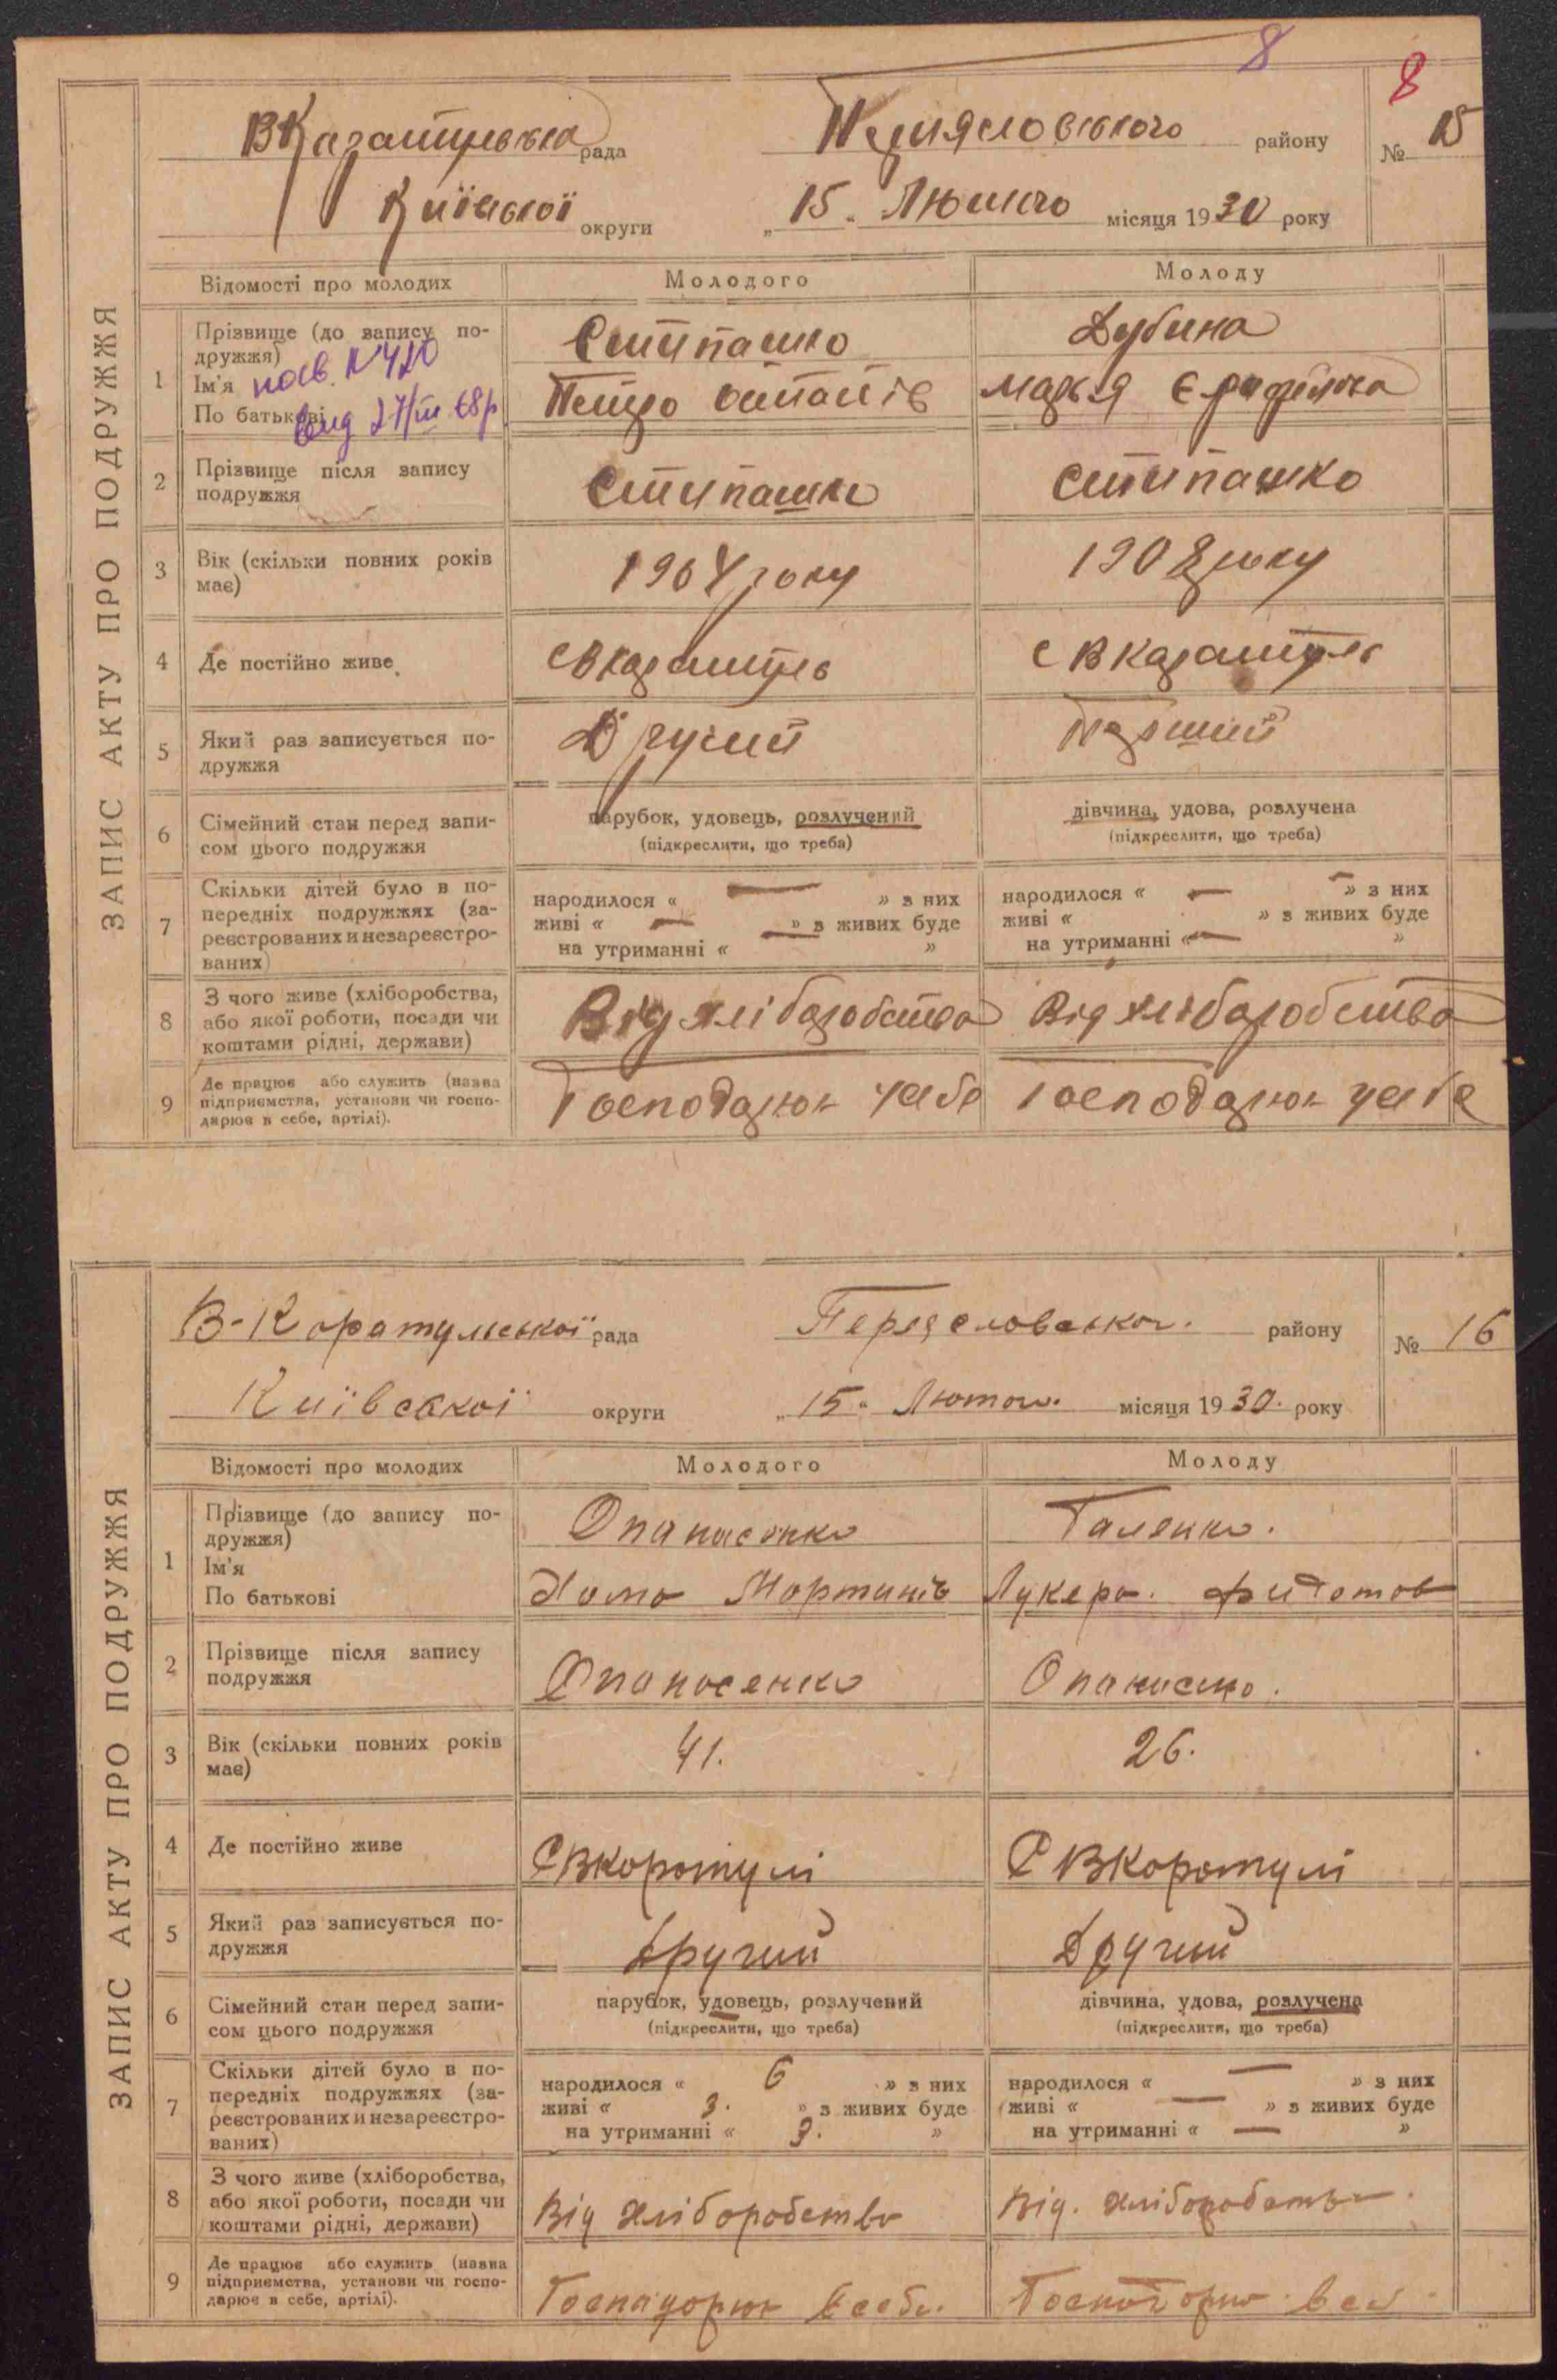 8
8
ЗАПИС АКТУ ПРО ПОДРУЖЖЯ
рада
району
№ 15
Київської округи
„15„ Лютого місяця 1930 року
Відомості про молодих
Молодого
Молоду
1
Прізвище (до запису по-
дружжя)
Ім'я
По батькові
Дубина
Петро
Марья
2
Прізвище після запису
подружжя
3
Вік (скільки повних років
має)
1904 року
1908 року
4
Де постійно живе
5
Який раз записується по-
дружжя
Другий
Перший
6
Сімейний стан перед запи-
сом цього подружжя
парубок, удовець, розлучений
(підкреслити, що треба)
дівчина, удова, розлучена
(підкреслити, що треба)
7
Скільки дітей було в по-
передніх подружжях (за-
реєстрованих и незареєстро-
ваних)
народилося « — » з них
живі « — » з живих буде
на утриманні « — »
народилося « — » з них
живі « — » з живих буде
на утриманні « — »
8
З чого живе (хліборобства,
або якої роботи, посади чи
коштами рідні, держави)
Від хліборобства
Від хліборобства
9
Де працює або служить (назва
підприємства, установи чи госпо-
дарює в себе, артілі).
ЗАПИС АКТУ ПРО ПОДРУЖЖЯ
В-Каратульської рада
району
№ 16
Київської округи
„15„ місяця 1930. року
Відомості про молодих
Молодого
Молоду
1
Прізвище (до запису по-
дружжя)
Ім'я
По батькові
Опанасенко
Галенко.
Хома Мартинів
Лукера.
2
Прізвище після запису
подружжя
Опанасенко
3
Вік (скільки повних років
має)
41.
26.
4
Де постійно живе
С Вкоратулі
С Вкоратулі
5
Який раз записується по-
дружжя
Другий
Другий
6
Сімейний стан перед запи-
сом цього подружжя
парубок, удовець, розлучений
(підкреслити, що треба)
дівчина, удова, розлучена
(підкреслити, що треба)
7
Скільки дітей було в по-
передніх подружжях (за-
реєстрованих и незареєстро-
ваних)
народилося « 6 » з них
живі « 3. » з живих буде
на утриманні « 3. »
народилося « — » з них
живі « — » з живих буде
на утриманні « — »
8
З чого живе (хліборобства,
або якої роботи, посади чи
коштами рідні, держави)
Від хліборобства
Від. хліборобства.
9
Де працює або служить (назва
підприємства, установи чи госпо-
дарює в себе, артілі).